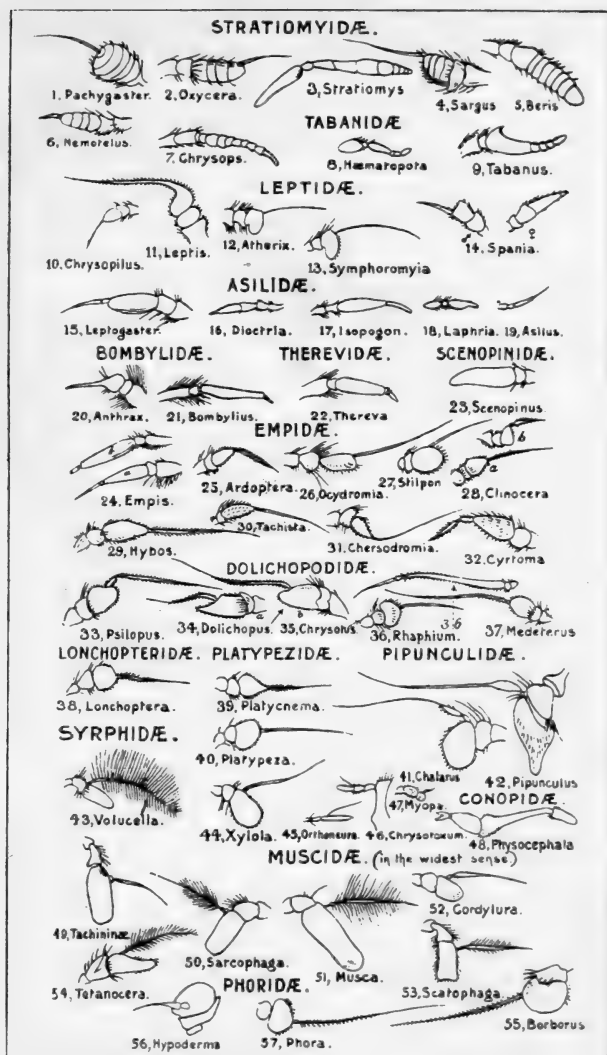 STRATIOMYIDÆ.
1. Pachygaster. 2, Oxycera. 3, Stratiomys 4, Sargus 5, Beris
TABANIDÆ
6, Nemotelus. 7. Chrysops. 8, Hæmatopota 9, Tabanus.
LEPTIDÆ.
10. Chrysopilus. 11, Leptis. 12, Atherix. 13, Symphoromyia 14. Spania. ♂ ♀
ASILIDÆ.
15, Leptogaster. 16, Dioctria. 17, Isopogon. 18, Laphria. 19, Asilus.
BOMBYLIDÆ. THEREVIDÆ. SCENOPINIDÆ.
20, Anthrax. 21, Bombylius. 22, Thereva 23, Scenopinus.
EMPIDÆ.
24. Empis. b a 25, Ardoptera. 26, Ocydromia. 27, Stilpon 28, Clinocera b a
29, Hybos. 30, Tachista. 31, Chersodromia. 32, Cyrtoma
DOLICHOPODIDÆ.
33, Psilopus. 34, Dolichopus. a b 35, Chrysotus. 36, Rhaphium. 36 37, Medeterus
LONCHOPTERIDÆ. PLATYPEZIDÆ. PIPUNCULIDÆ.
38, Lonchoptera. 39, Platycnema.
SYRPHIDÆ.
40, Platypeza. 41, Chalarus 42, Pipunculus
CONOPIDÆ.
43, Volucella. 44, Xylota. 45, Orthoneura. 46, Chrysotoxum. 47, Myopa. 48, Physocephala
MUSCIDÆ. (in the widest sense.)
49, Tachininæ. 50, Sarcophaga. 51, Musca. 52, Cordylura. 53, Scatophaga.
54, Tetanocera. 55, Borborus
PHORIDÆ.
56, Hypoderma 57, Phora.